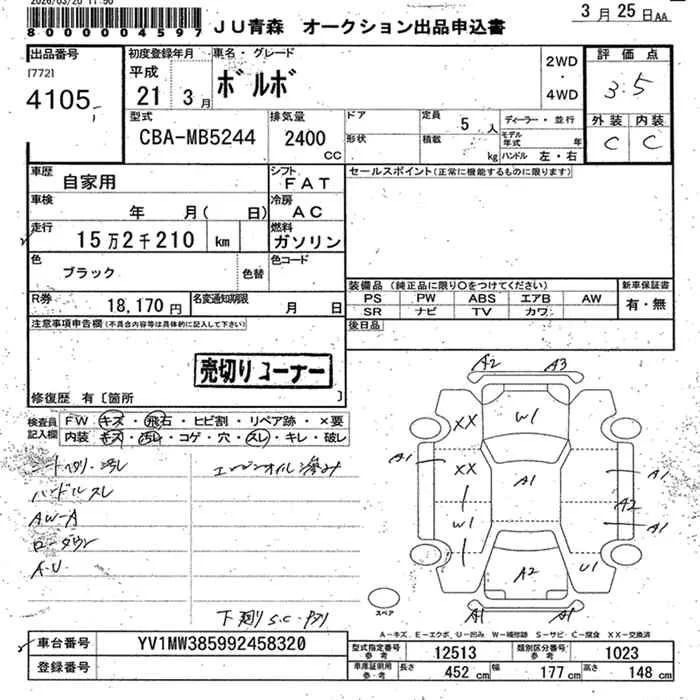 2026/03/20 11:50
3月25日AA
8000004597
JU青森 オークション出品申込書
出品番号
[772]
4105
初度登録年月
平成
21 3月
車名・グレード
ボルボ
2WD
・
4WD
評価点
3.5
外装 内装
C C
型式
CBA-MB5244
排気量
2400
CC
ドア
形状
定員 5人
積載 kg
ディーラー・並行
モデル年式 年
ハンドル 左・右
車歴
自家用
シフト
FAT
セールスポイント(正常に機能するものに限ります)
車検
年 月( 日)
冷房
AC
走行
15万2千210 km
燃料
ガソリン
色
ブラック
色替
色コード
装備品(純正品に限り〇をつけてください)
新車保証書
PS PW ABS エアB AW
有・無
SR ナビ TV カワ
後日品
R券
18,170円
名変通知期限
月 日
注意事項申告欄(不具合内容等は具体的に記入して下さい)
売切りコーナー
修復歴 有〔箇所 〕
検査員記入欄
FW キズ・飛石・ヒビ割・リペア跡・×要
内装 キズ・汚レ・コゲ・穴・スレ・キレ・破レ
シートヘタリ・汚レ
エンジンオイル滲み
ハンドルスレ
AW-A
ローダウン
A・U
下廻りS.C・
A2 A3
XX W1
A1 XX A1 A1
W1 A2
A1
A2 U1
A1 A1
スペア
A-キズ、E-エクボ、U-凹み W-補修跡 S-サビ C-腐食 XX-交換済
車台番号
YV1MW385992458320
登録番号
型式指定番号
参考
12513
類別区分番号
参考
1023
車庫証明用
参考
長さ 452 cm 幅 177 cm 高さ 148 cm